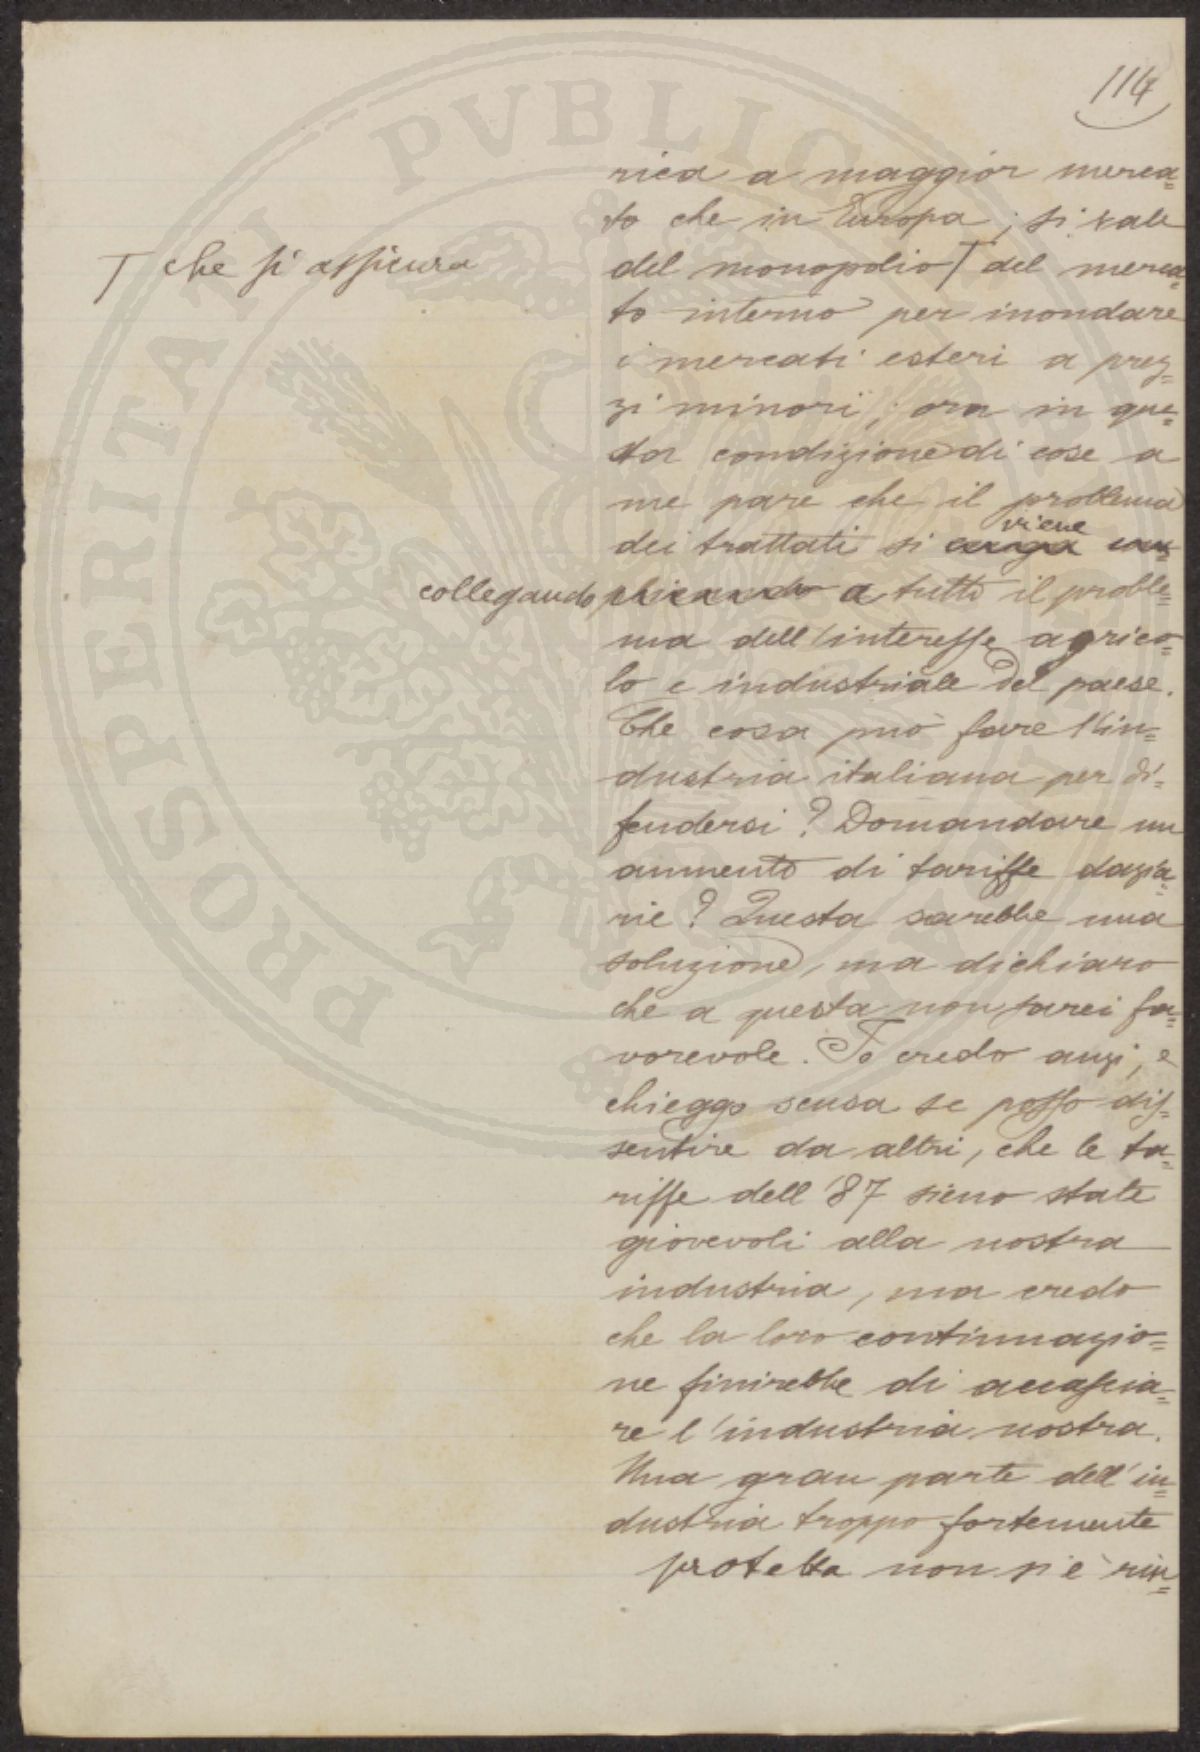 114
rica a maggior merca=
to che in Europa; si vale
T che si assicura
del monopolio T del merca=
to interno per inondare
i mercati esteri a prez=
zi minori; ora in que=
sta condizione di cose a
me pare che il problema
viene
dei trattati si
collegando a tutto il proble=
ma dell'interesse agrico=
lo e industriale del paese.
Che cosa può fare l'in=
dustria italiana per di=
fendersi? Domandare un
aumento di tariffe dazia=
rie? Questa sarebbe una
soluzione, ma dichiaro
che a questa non sarei fa=
vorevole. Io credo anzi, e
chieggo scusa se posso dis=
sentire da altri, che le ta=
riffe dell'87 sieno state
giovevoli alla nostra
industria, ma credo
che la loro continuazio=
ne finirebbe di accascia=
re l'industria nostra.
Una gran parte dell'in=
dustria troppo fortemente
protetta non si è rin=
PROSPERITATI PVBLICAE